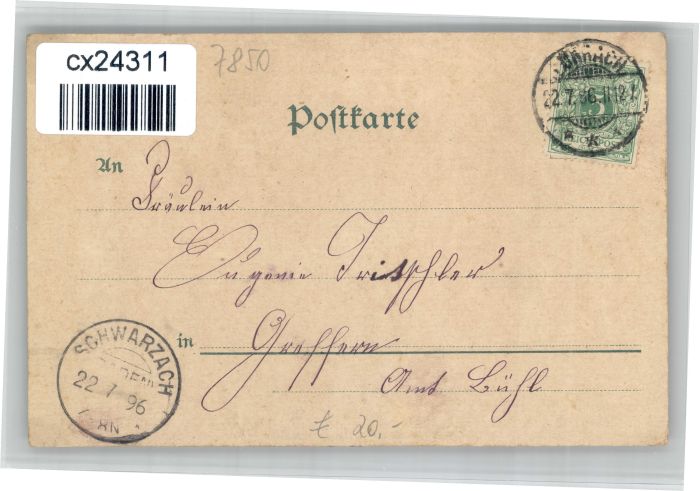 cx24311
7850
LÖRRACH
22.7.96.
5
REICHSPOST
Postkarte
An
Fräulein
Eugenie Tritschler
in
Greffern
Amt Bühl
SCHWARZACH
22 7 96
€ 20,-